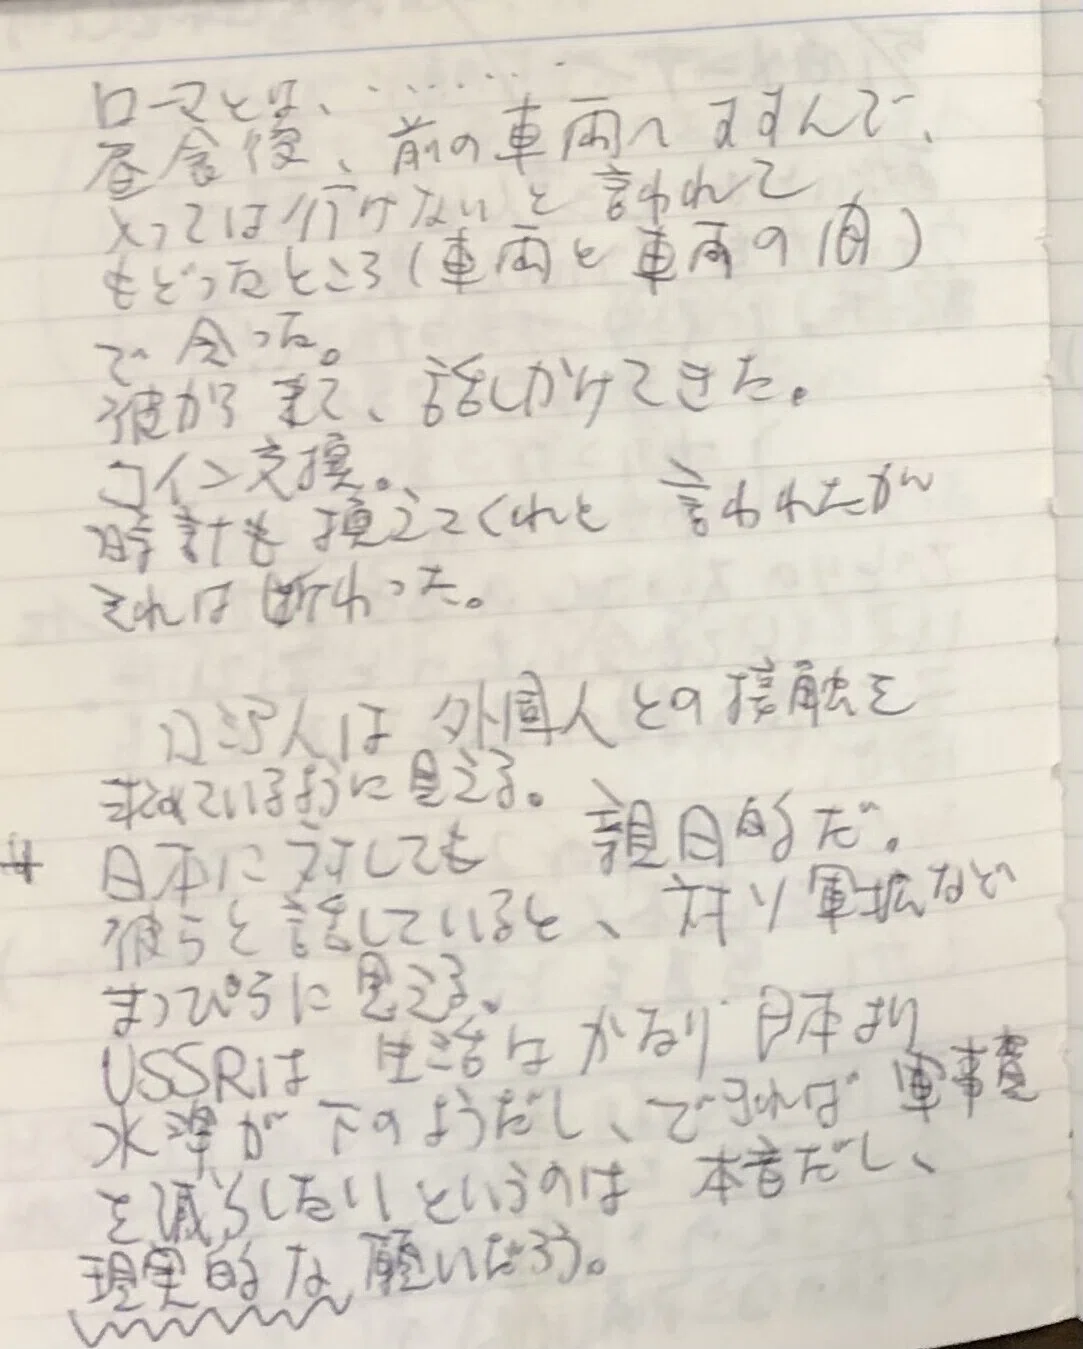 ローマとは、.......
昼食後、前の車両へすすんで、
入っては行けないと言われて
もどったところ(車両と車両の間)
で会った。
彼から来て、話しかけてきた。
コイン交換。
時計も換えてくれと言われたが
それは断わった。
ロシア人は外国人との接触を
求めているように見える。
# 日本に対しても 親日的だ。
彼らと話していると、対ソ軍拡など
まっぴらに思える。
USSRは 生活はかなり日本より
水準が下のようだし、できれば軍事費
を減らしたいというのは 本音だし、
現実的な願いだろう。